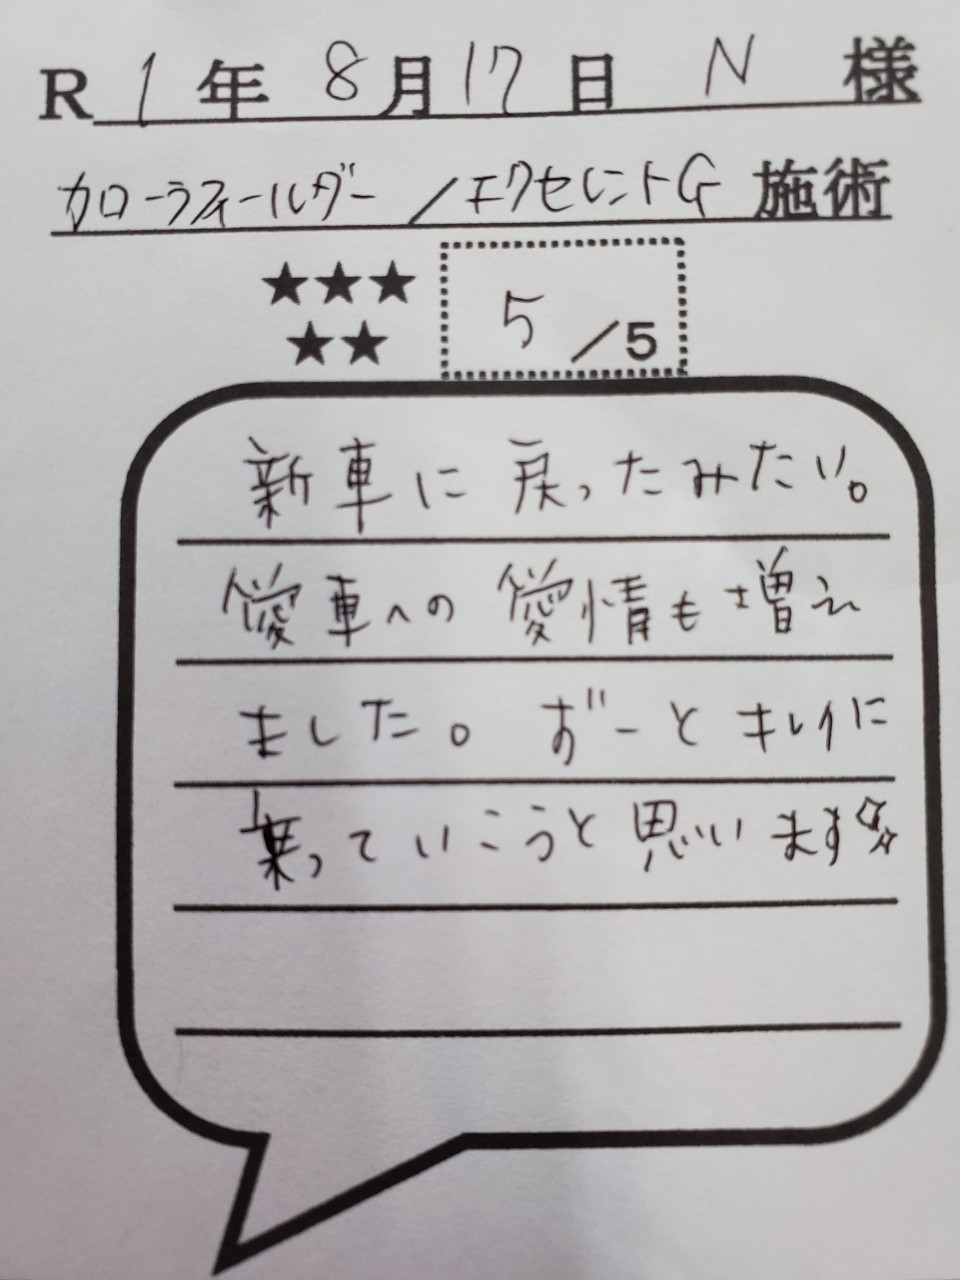 R 1 年 8 月 17 日 N 様
カローラフィールダー / エクセレントG 施術
★★★
★★
5 /5
新車に戻ったみたい。
愛車への愛情も増え
ました。ずーとキレイに
乗っていこうと思います☆☆